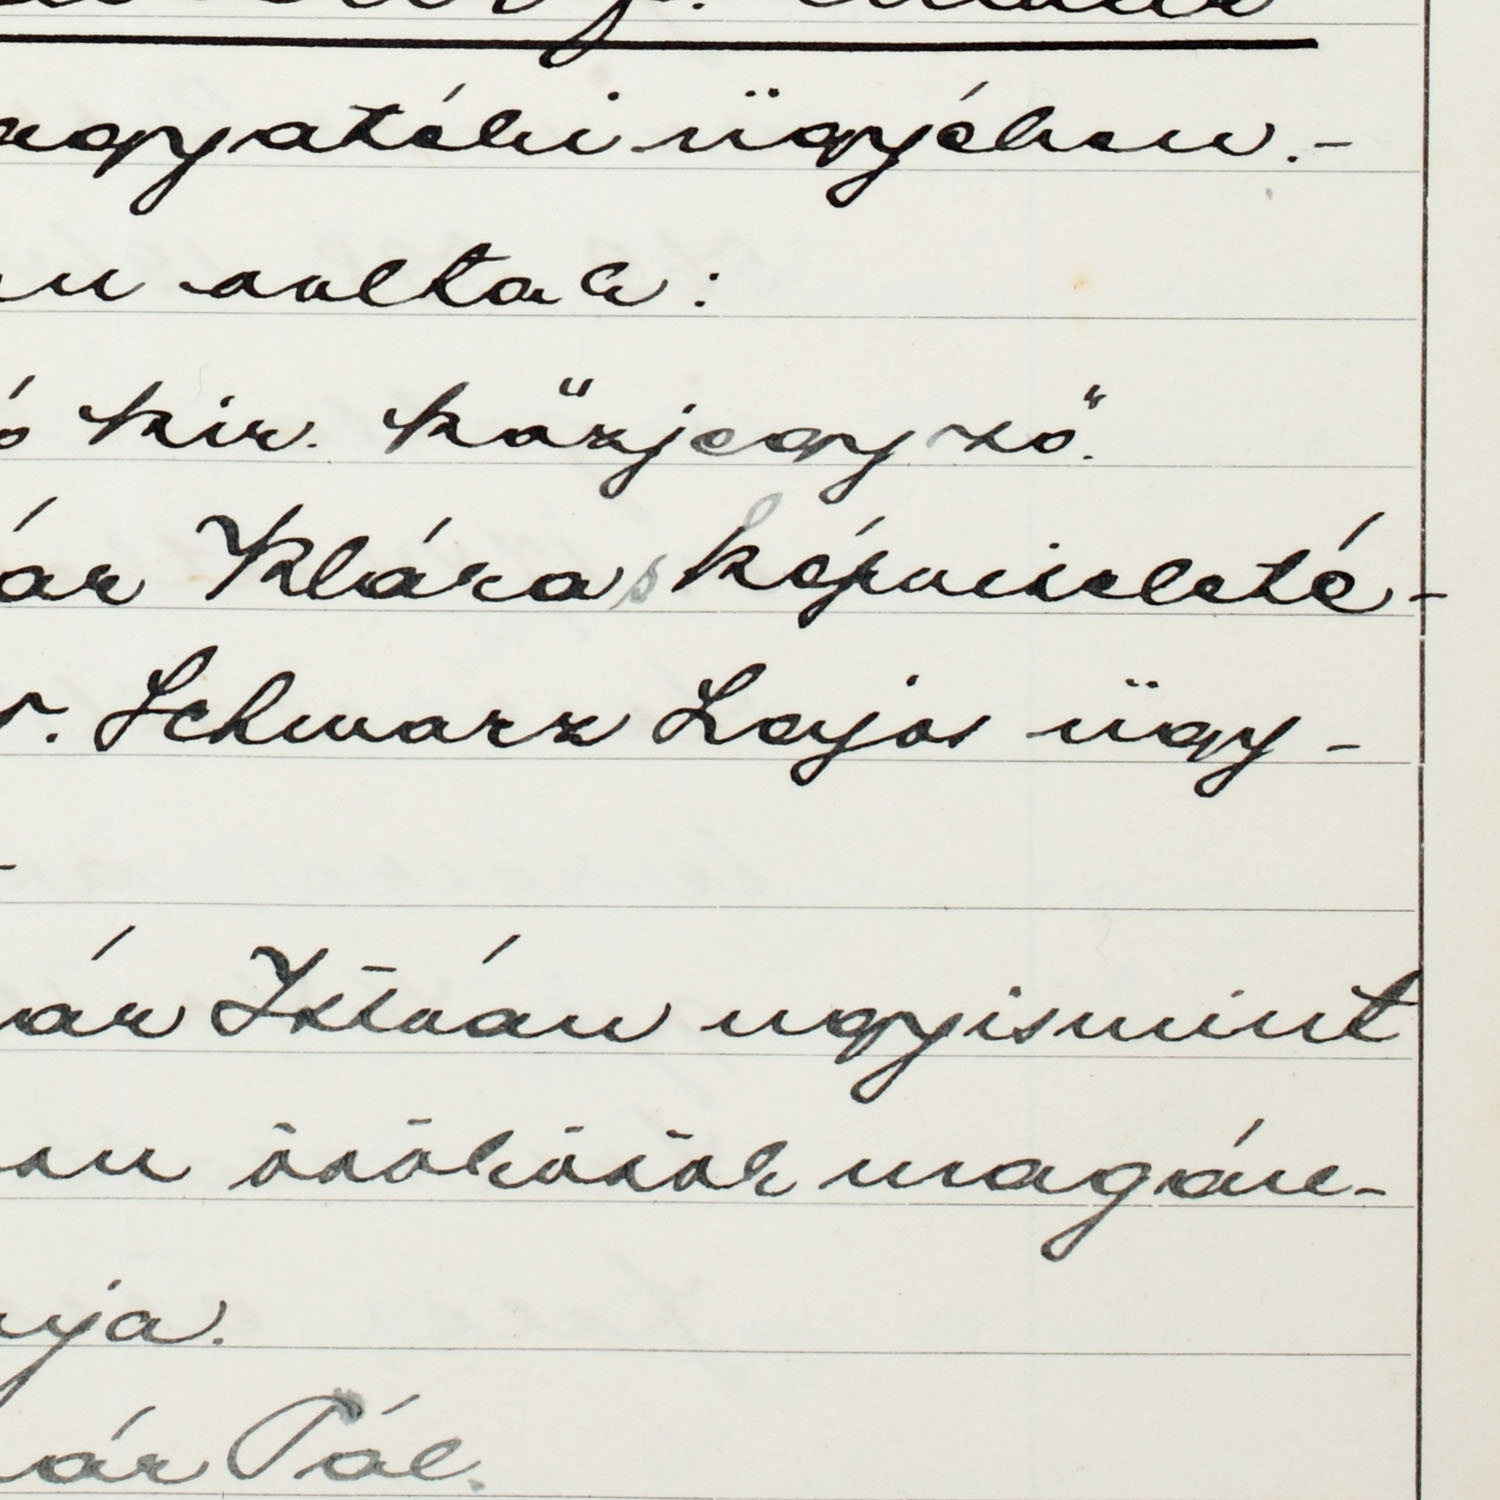 agyatéki ügyében.-
voltak:
ó kir. közjegyző.
ár Klára képviseleté-
r. Schwarz Lajos ügy-
-
ár István ugyismint
örökösök magán-
ja.
ár Pál.